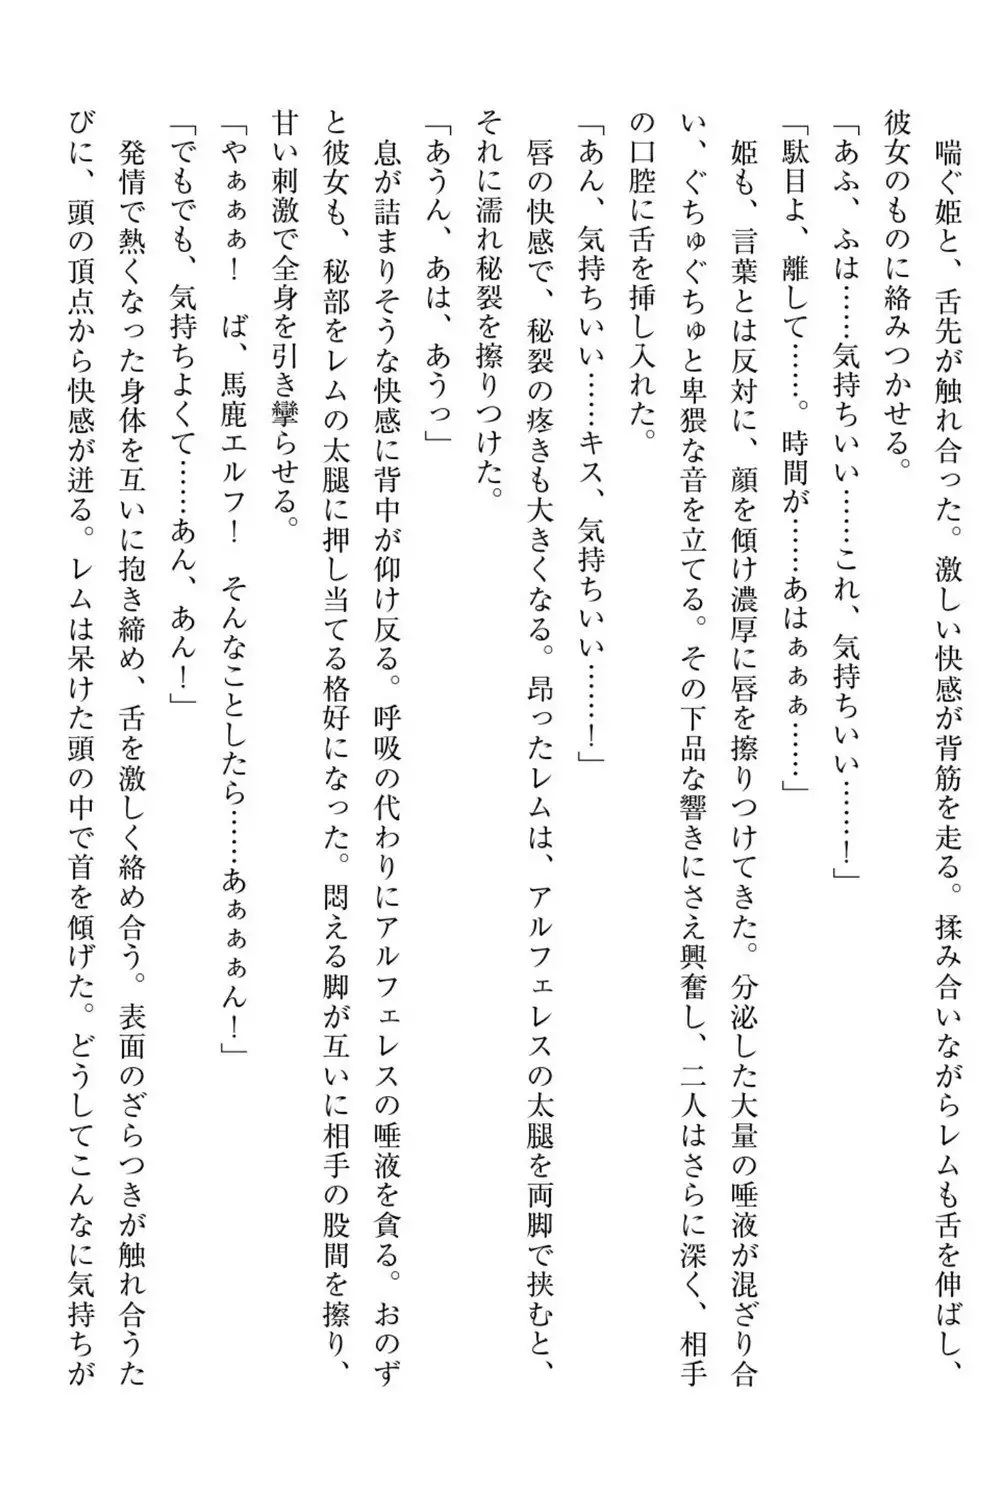 喘ぐ姫と、舌先が触れ合った。激しい快感が背筋を走る。揉み合いながらレムも舌を伸ばし、
彼女のものに絡みつかせる。
「あふ、ふは……気持ちいい……これ、気持ちいい……！」
「駄目よ、離して……。時間が……あはぁぁぁ……」
　姫も、言葉とは反対に、顔を傾け濃厚に唇を擦りつけてきた。分泌した大量の唾液が混ざり合
い、ぐちゅぐちゅと卑猥な音を立てる。その下品な響きにさえ興奮し、二人はさらに深く、相手
の口腔に舌を挿し入れた。
「あん、気持ちいい……キス、気持ちいい……！」
　唇の快感で、秘裂の疼きも大きくなる。昂ったレムは、アルフェレスの太腿を両脚で挟むと、
それに濡れ秘裂を擦りつけた。
「あうん、あは、あうっ」
　息が詰まりそうな快感に背中が仰け反る。呼吸の代わりにアルフェレスの唾液を貪る。おのず
と彼女も、秘部をレムの太腿に押し当てる格好になった。悶える脚が互いに相手の股間を擦り、
甘い刺激で全身を引き攣らせる。
「やぁぁぁ！　ば、馬鹿エルフ！　そんなことしたら……あぁぁぁん！」
「でもでも、気持ちよくて……あん、あん！」
　発情で熱くなった身体を互いに抱き締め、舌を激しく絡め合う。表面のざらつきが触れ合うた
びに、頭の頂点から快感が迸る。レムは呆けた頭の中で首を傾げた。どうしてこんなに気持ちが